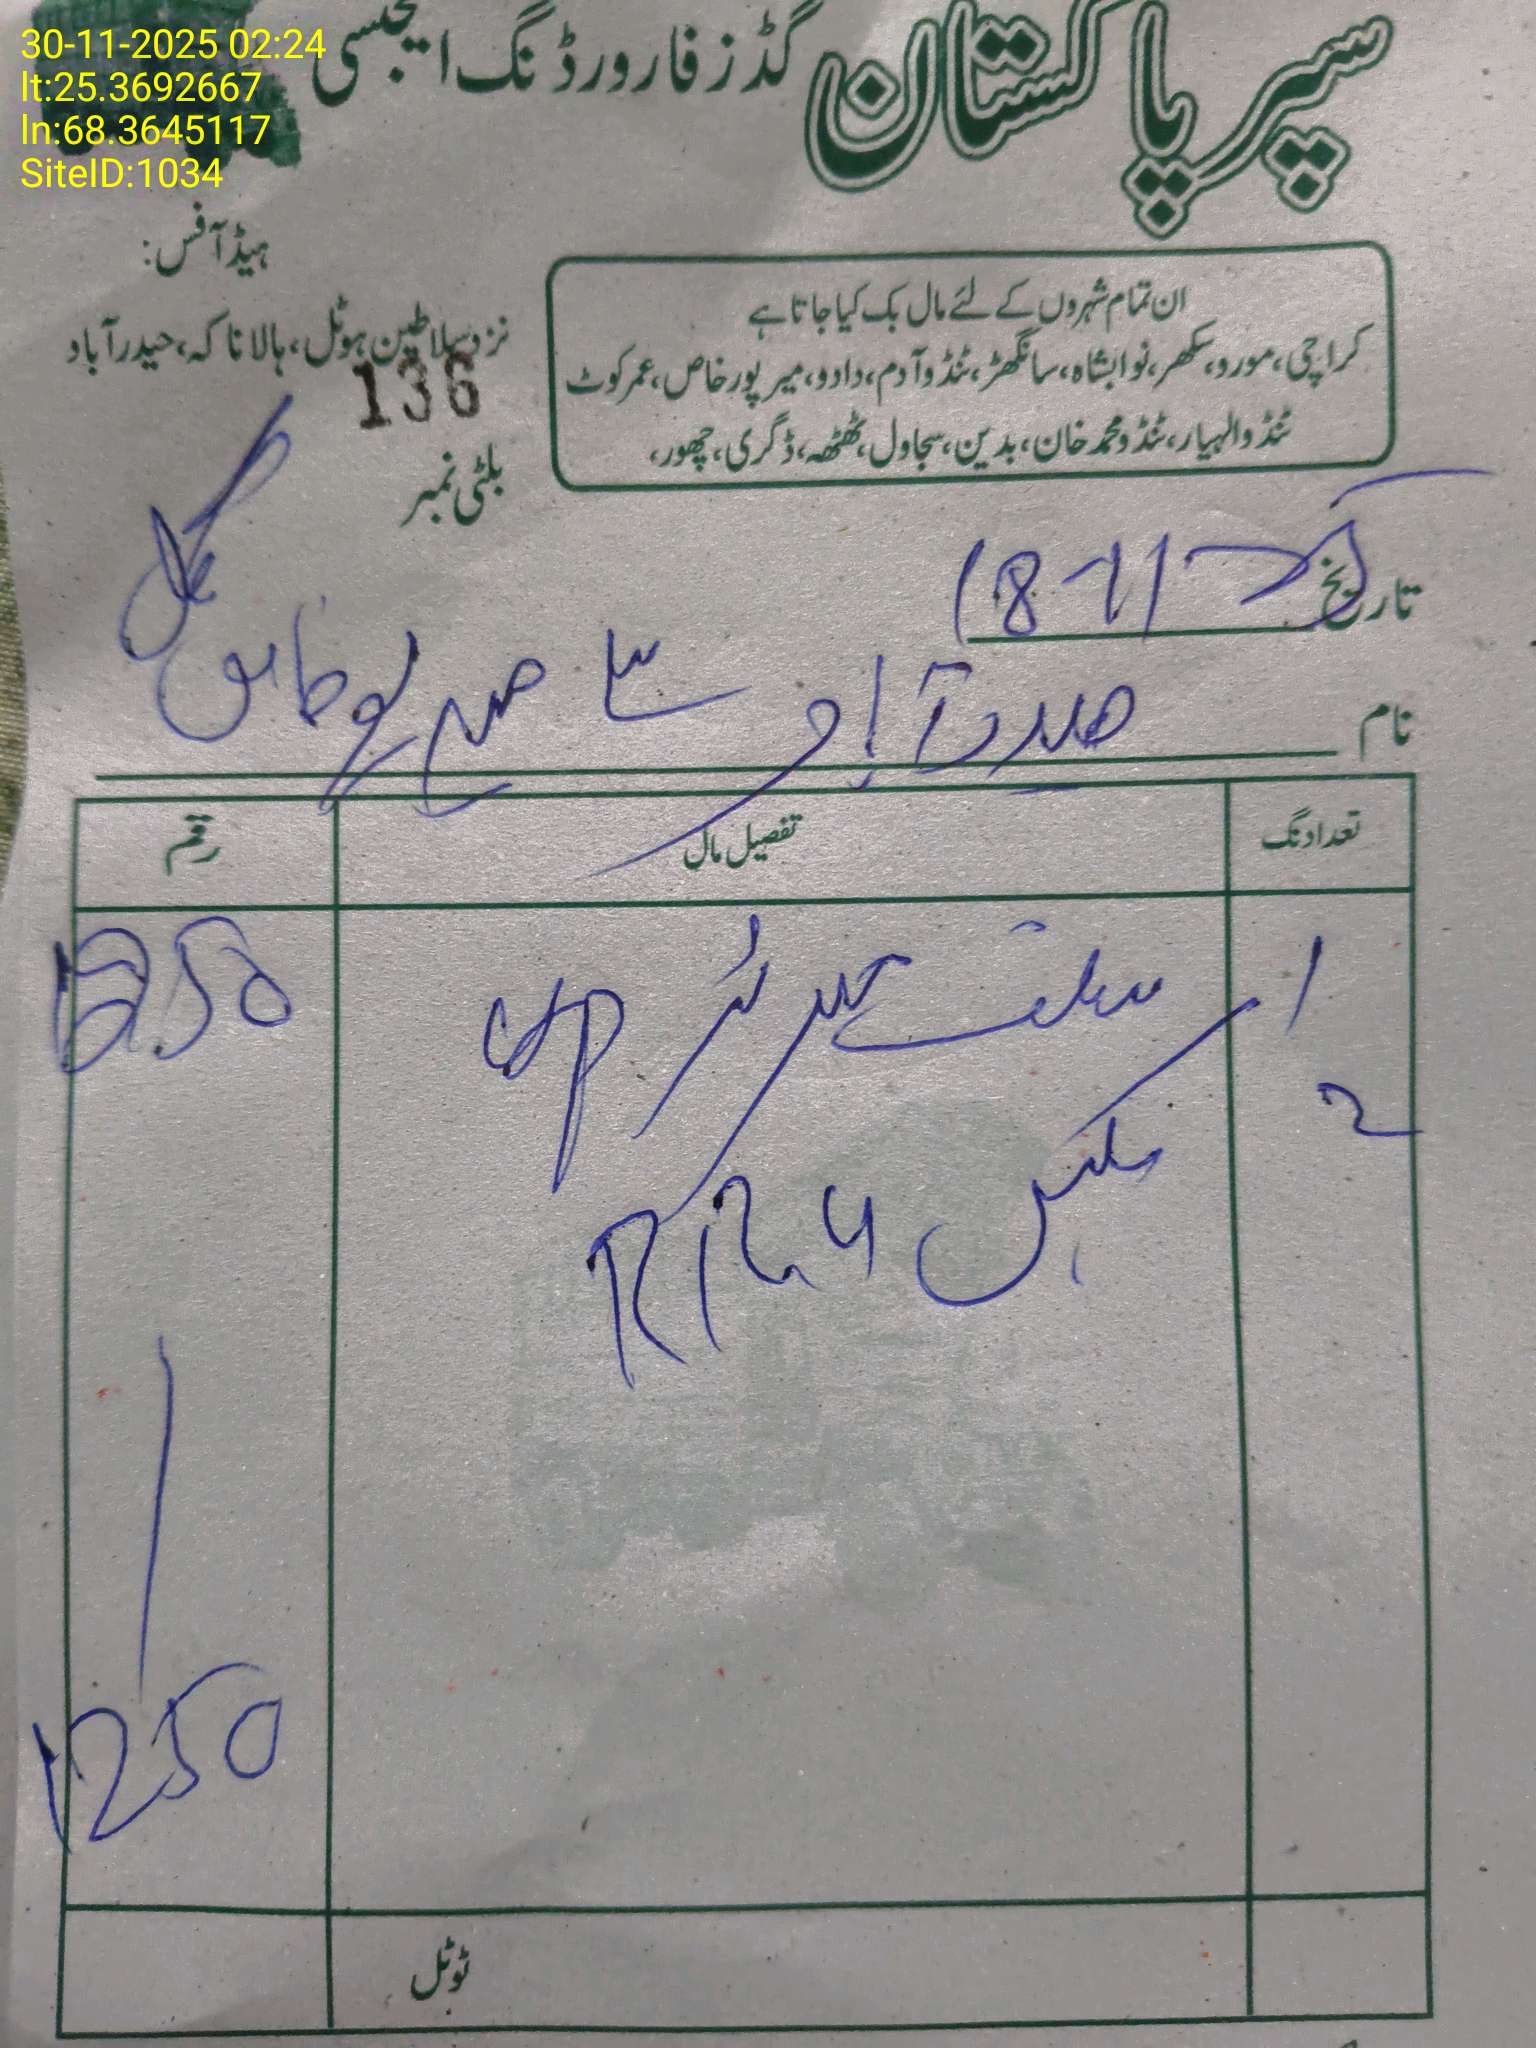 30-11-2025 02:24
lt:25.3692667
ln:68.3645117
SiteID:1034
سپر پاکستان گڈز فارورڈنگ ایجنسی
ہیڈ آفس:
نزد سلاطین ہوٹل، ہالا ناکہ، حیدرآباد
ان تمام شہروں کے لئے مال بک کیا جاتا ہے
کراچی، مورو، سکھر، نوابشاہ، سانگھڑ، ٹنڈوآدم، دادو، میرپورخاص، عمرکوٹ
ٹنڈوالہیار، ٹنڈو محمد خان، بدین، سجاول، ٹھٹھہ، ڈگری، چھور،
136
بلٹی نمبر
تاریخ 18-11
نام حیدرآباد سے میرپور خاص
تعداد نگ تفصیل مال رقم
1 1250
2 مکس
1250
ٹوٹل